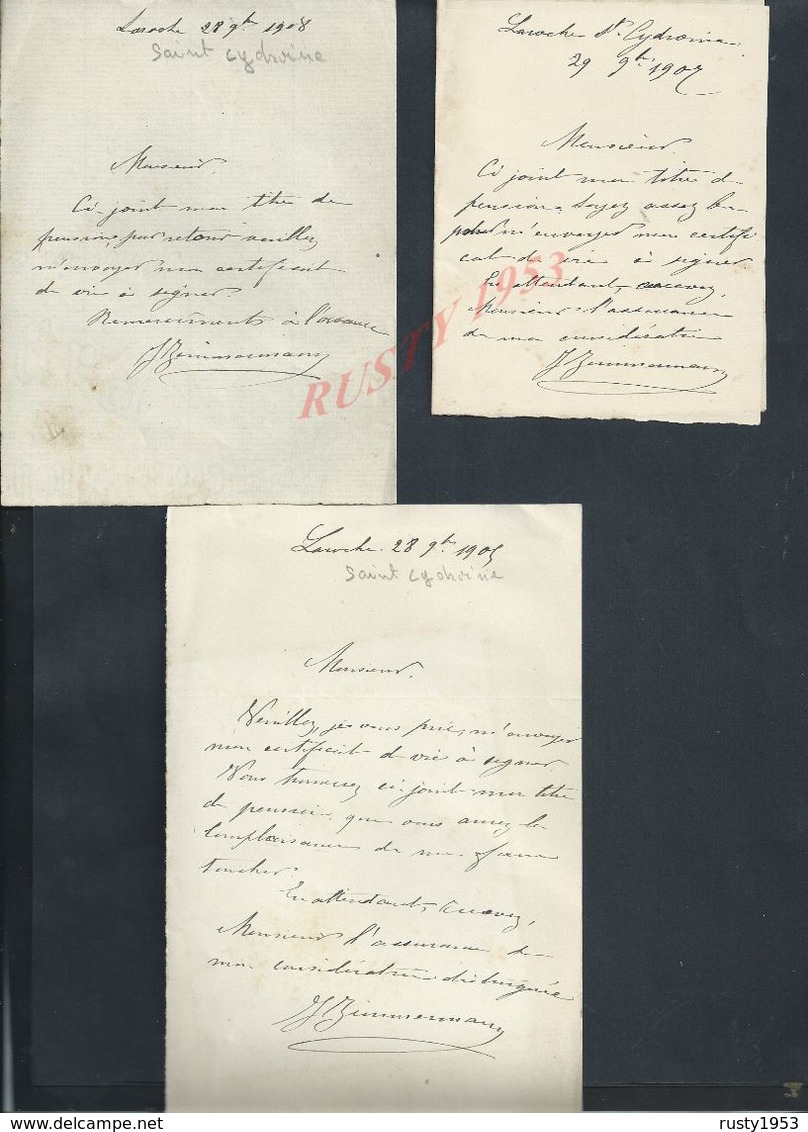 Laroche 28 9bre 1908
Saint Cydroine
Monsieur
Ci joint mon titre de
pension, par retour veuillez
m'envoyer mon certificat
de vie à signer.
Remerciements à l'avance
J Zimmermann
Laroche St Cydroine
29 9bre 1907
Monsieur
Ci joint mon titre de
pension, soyez assez
m'envoyer mon certifi
cat de vie à signer
En attendant, recevez,
Monsieur l'assurance
de ma considération
J Zimmermann
RUSTY 1953
Laroche 28 9bre 1905
Saint Cydroine
Monsieur
Veuillez, je vous prie, m'envoyer
mon certificat de vie à signer
Vous trouverez ci-joint mon titre
de pension que vous aurez la
complaisance de me faire
toucher.
En attendant, recevez,
Monsieur l'assurance de
ma considération distinguée
J Zimmermann
delcampe.net
rusty1953